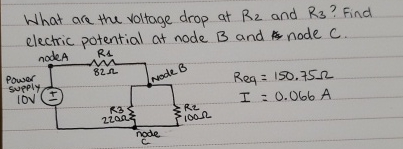 What are the voltage drop at R2 and R3? Find
electric potential at node B and node C.
node A
R1
82Ω
Node B
Power
supply
10V
R3
220Ω
R2
100Ω
node
C
Req = 150.75Ω
I = 0.066 A